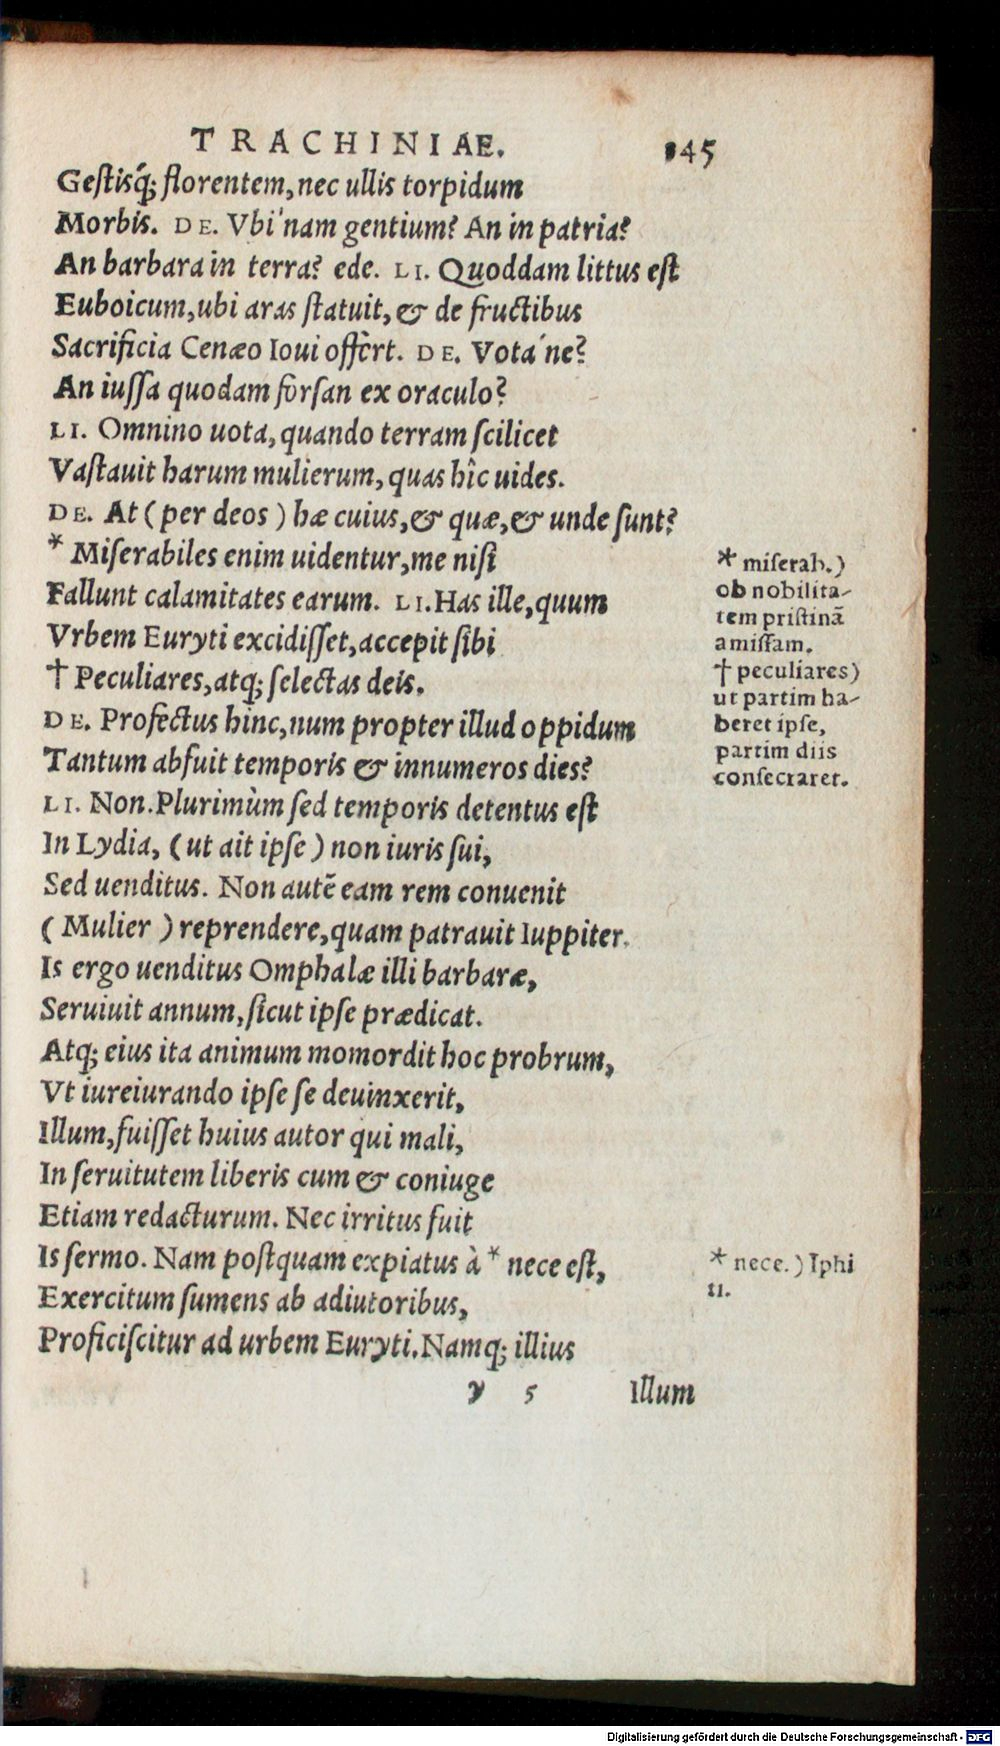 TRACHINIAE. 345
Gestisq́; florentem, nec ullis torpidum
Morbis. DE. Vbi'nam gentium? An in patria?
An barbara in terra? ede. LI. Quoddam littus est
Euboicum, ubi aras statuit, & de fructibus
Sacrificia Cenæo Ioui offert. DE. Vota'ne?
An iussa quodam forsan ex oraculo?
LI. Omnino uota, quando terram scilicet
Vastauit harum mulierum, quas hîc uides.
DE. At (per deos) hæ cuius, & quæ, & unde sunt?
* Miserabiles enim uidentur, me nisi
Fallunt calamitates earum. LI. Has ille, quum
Vrbem Euryti excidisset, accepit sibi
† Peculiares, atq; selectas deis.
DE. Profectus hinc, num propter illud oppidum
Tantum abfuit temporis & innumeros dies?
LI. Non. Plurimùm sed temporis detentus est
In Lydia, (ut ait ipse) non iuris sui,
Sed uenditus. Non autẽ eam rem conuenit
(Mulier) reprendere, quam patrauit Iuppiter.
Is ergo uenditus Omphalæ illi barbaræ,
Seruiuit annum, sicut ipse prædicat.
Atq; eius ita animum momordit hoc probrum,
Vt iureiurando ipse se deuinxerit,
Illum, fuisset huius autor qui mali,
In seruitutem liberis cum & coniuge
Etiam redacturum. Nec irritus fuit
Is sermo. Nam postquam expiatus à * nece est,
Exercitum sumens ab adiutoribus,
Proficiscitur ad urbem Euryti. Namq; illius
y 5 Illum
* miserab.)
ob nobilita-
tem pristinã
amissam.
† peculiares)
ut partim ha-
beret ipse,
partim diis
consecraret.
* nece.) Iphi
ti.
Digitalisierung gefördert durch die Deutsche Forschungsgemeinschaft - DFG